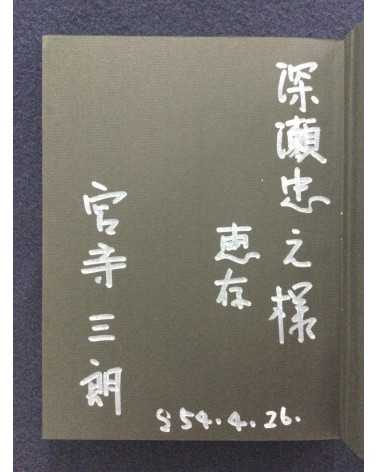 深瀬忠之様
恵存
宮寺三郎
S54.4.26.